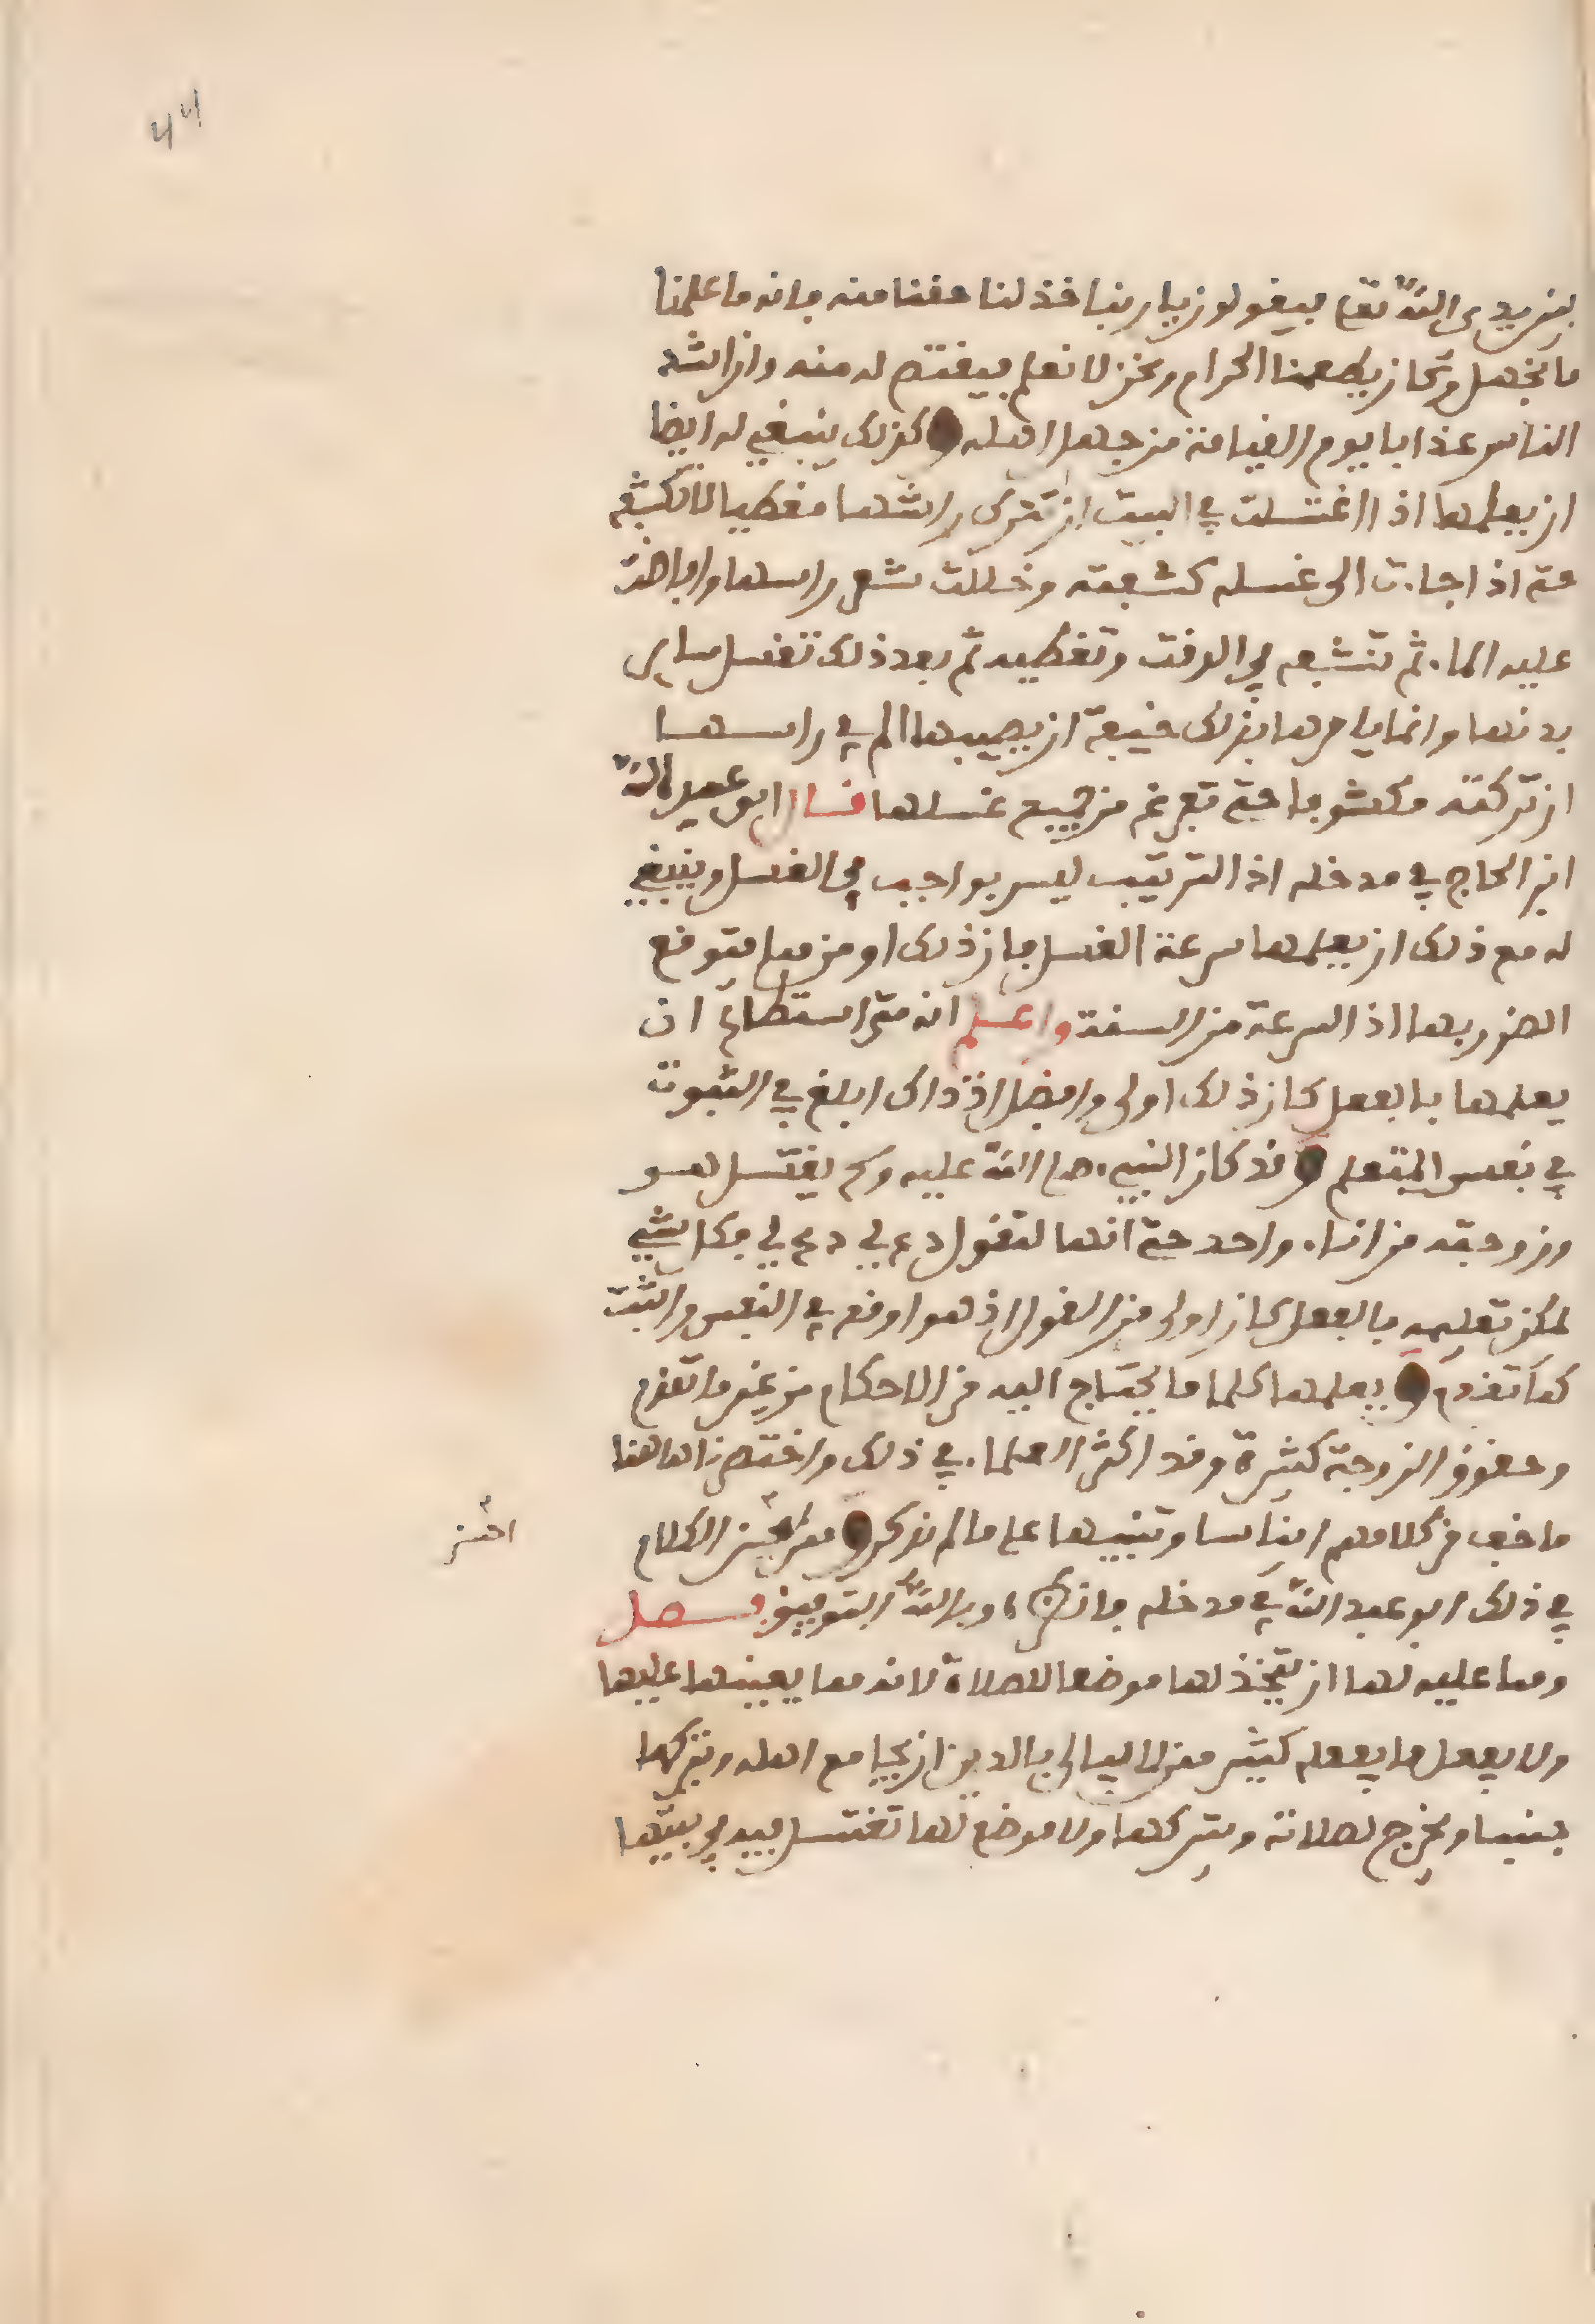 44
بين يدي الله تعلى فيقولون يا ربنا خذ لنا حقنا منه فانه ما علمنا
ما نجهل وكان يطعمنا الحرام ونحن لا نعلم فيقتص له منه وان اشد
الناس عذابا يوم القيامة من جهل اهله وكذلك ينبغي له ايضا
ان يعلمها اذا اغتسلت في البيت ان تترك راسها مغطيا لا تكشفه
حتى اذا جاءت الى غسله كشفته وخللت شعر راسها وافاضت
عليه الماء ثم تنشفه في الوقت وتغطيه ثم بعد ذلك تغسل ساير
بدنها وانما يامرها بذلك خيفة ان يصيبها الم في راسها
ان تركته مكشوفا حتى تفرغ من جميع غسلها قال ابو عبد الله
ابن الحاج في مدخله اذ الترتيب ليس بواجب في الغسل وينبغي
له مع ذلك ان يعلمها سرعة الغسل فان ذلك او من مما يتوقع
الضرر بها اذ السرعة من السنة واعلم انه متى استطاع ان
يعلمها بالفعل كان ذلك اولى وافضل اذ ذاك ابلغ في الثبوت
في نفس المتعلم وقد كان النبيء صلى الله عليه وسلم يغتسل هو
وزوجته من اناء واحد حتى انها لتقول دع لي دع لي فكل شيء
امكن تعليمه بالفعل كان اولى من القول اذ هو اوقع في النفس واثبت
كما تقدم ويعلمها كلما ما يحتاج اليه من الاحكام من غير ما تقدم
وحقوق الزوجة كثيرة وقد اكثر العلماء في ذلك واختصرنا ها هنا
ما خف من كلامهم ايناسا وتنبيها على ما لم نذكر وممن اكثر الكلام
اكثر
في ذلك ابو عبد الله في مدخله فانظره وبالله التوفيق فصل
ومما عليه لها ان يتخذ لها موضعا للصلاة لانه مما يعينها عليها
ولا يفعل ما يفعله كثير ممن لا يبالي بالدين ان يجامع اهله ويتركها
جنبا ويخرج لصلاته ويتركها ولا موضع لها تغتسل فيه في بيتها